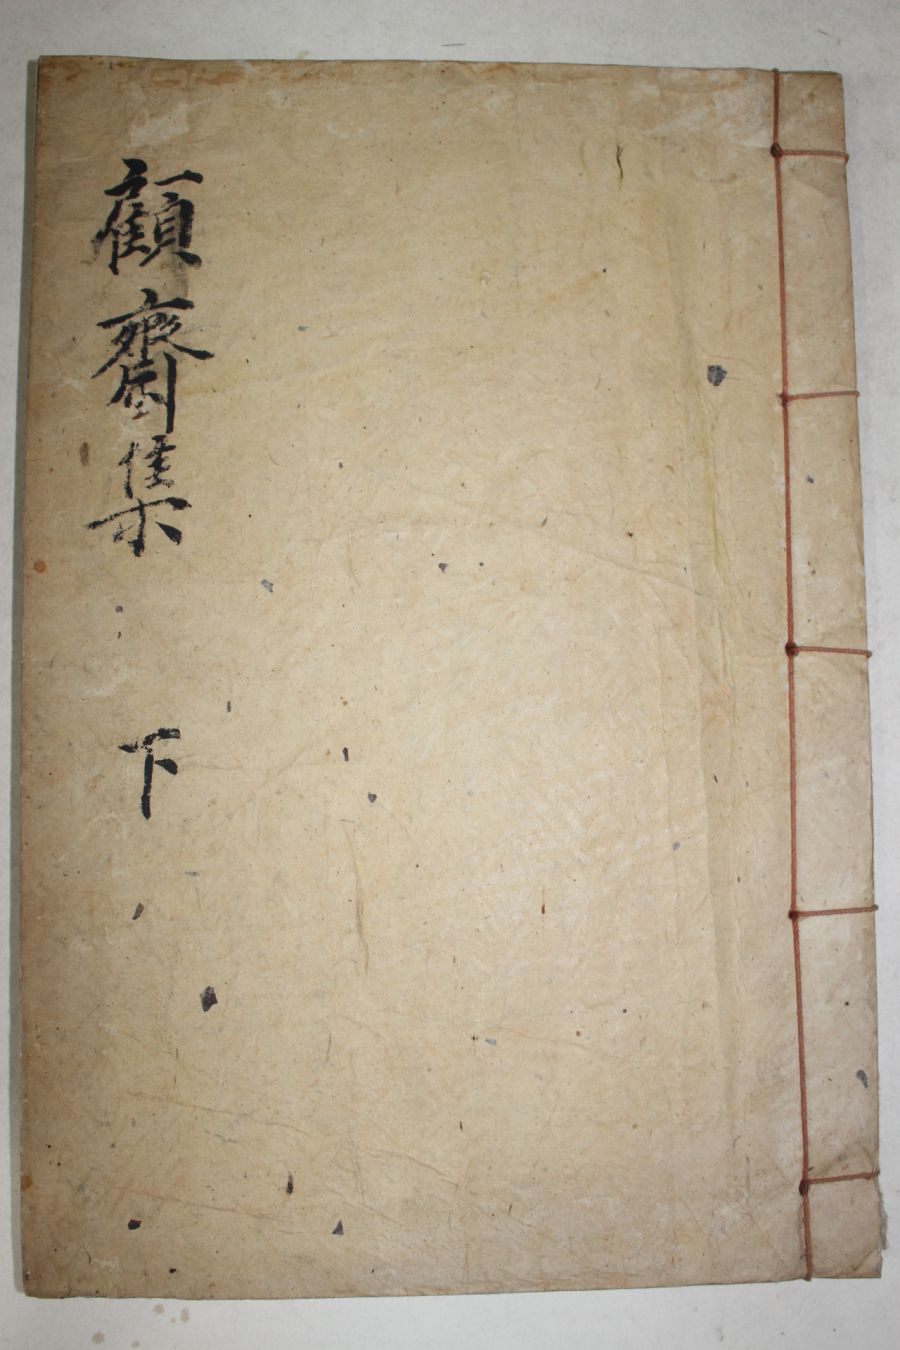 顧齋集 下